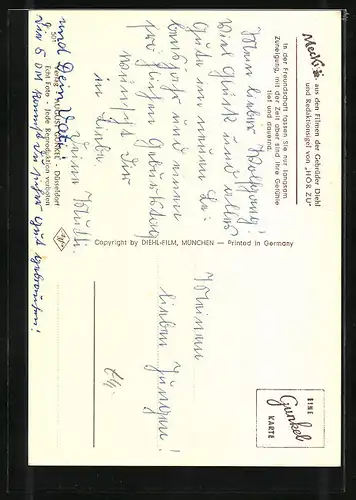 Mecki aus den Filmen der Gebrüder Diehl
und Redaktionsigel von „HÖR ZU"
In der Freundschaft fassen Sie nur langsam
Zuneigung, mit der Zeit aber sind Ihre Gefühle
fest und dauernd.
Mein lieber Wolfgang!
Viel Glück und alles
Gute im neuen Le-
bensjahr und einen
Geburtstag
wünscht Dir
in Liebe
Deine Mutti.
und Dein Vati
Copyright by DIEHL-FILM, MÜNCHEN — Printed in Germany
501
Verlag AUGUST GUNKEL · Düsseldorf
Echt Foto · Jede Reproduktion verboten
Den 5 DM
Meinem
lieben Jungen!
EINE
Gunkel
KARTE